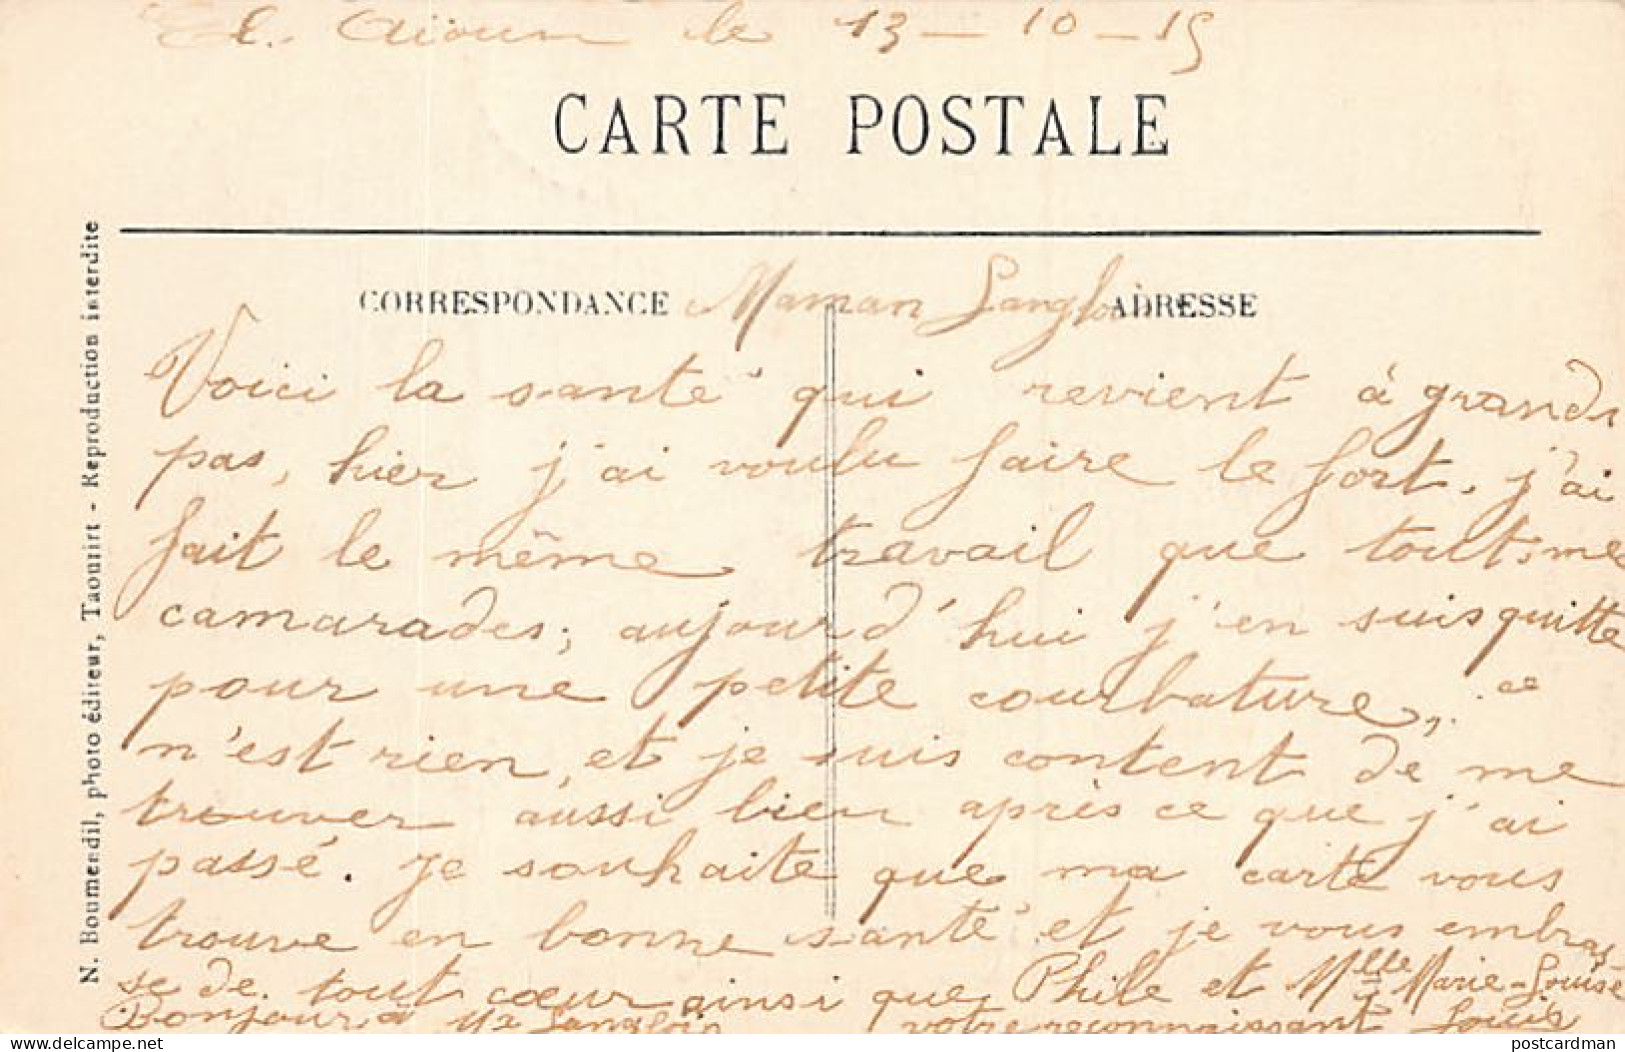 El. Aïoun le 13-10-15
CARTE POSTALE
CORRESPONDANCE
ADRESSE
Maman Langlois
Voici la santé qui revient à grands
pas, hier j'ai voulu faire le fort, j'ai
fait le même travail que touts me
camarades; aujourd'hui j'en suis quitte
pour une petite courbature, ce
n'est rien, et je suis content de me
trouver aussi bien après ce que j'ai
passé. Je souhaite que ma carte vous
trouve en bonne santé et je vous embras
se de tout cœur ainsi que Phile et Mlle Marie-Louise
Bonjour à Mr Langlois votre reconnaissant Louis
N. Boumendil, photo éditeur, Taouirt - Reproduction interdite
postcardman